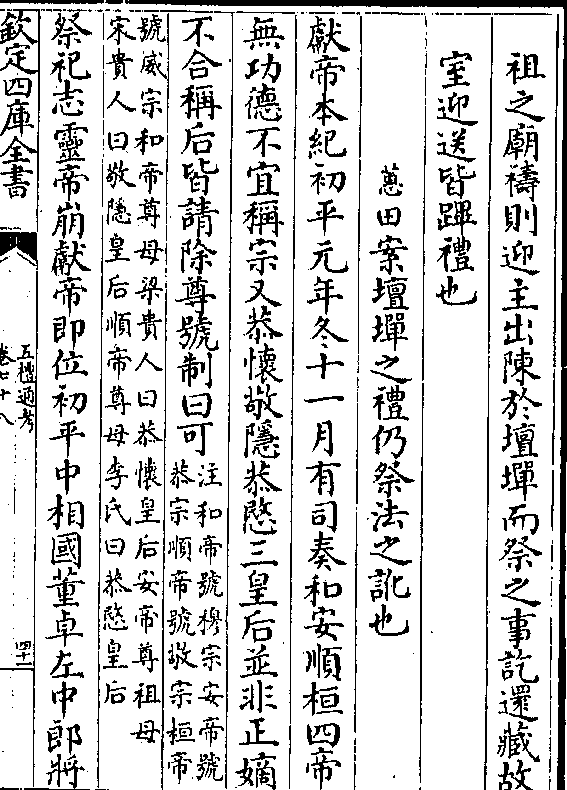 祖之廟禱則迎主出陳於壇墠而祭之事訖還藏故
室迎送皆蹕禮也
蕙田案壇墠之禮仍祭法之訛也
獻帝本紀初平元年冬十一月有司奏和安順桓四帝
無功德不宜稱宗又恭懷敬隱恭愍三皇后並非正嫡
不合稱后皆請除尊號制曰可
注和帝號穆宗安帝號
恭宗順帝號敬宗桓帝
號威宗和帝尊母梁貴人曰恭懷皇后安帝尊祖母
宋貴人曰敬隱皇后順帝尊母李氏曰恭愍皇后
祭祀志靈帝崩獻帝即位初平中相國董卓左中郎將
欽定四庫全書
五禮通考
卷七十八
四十一